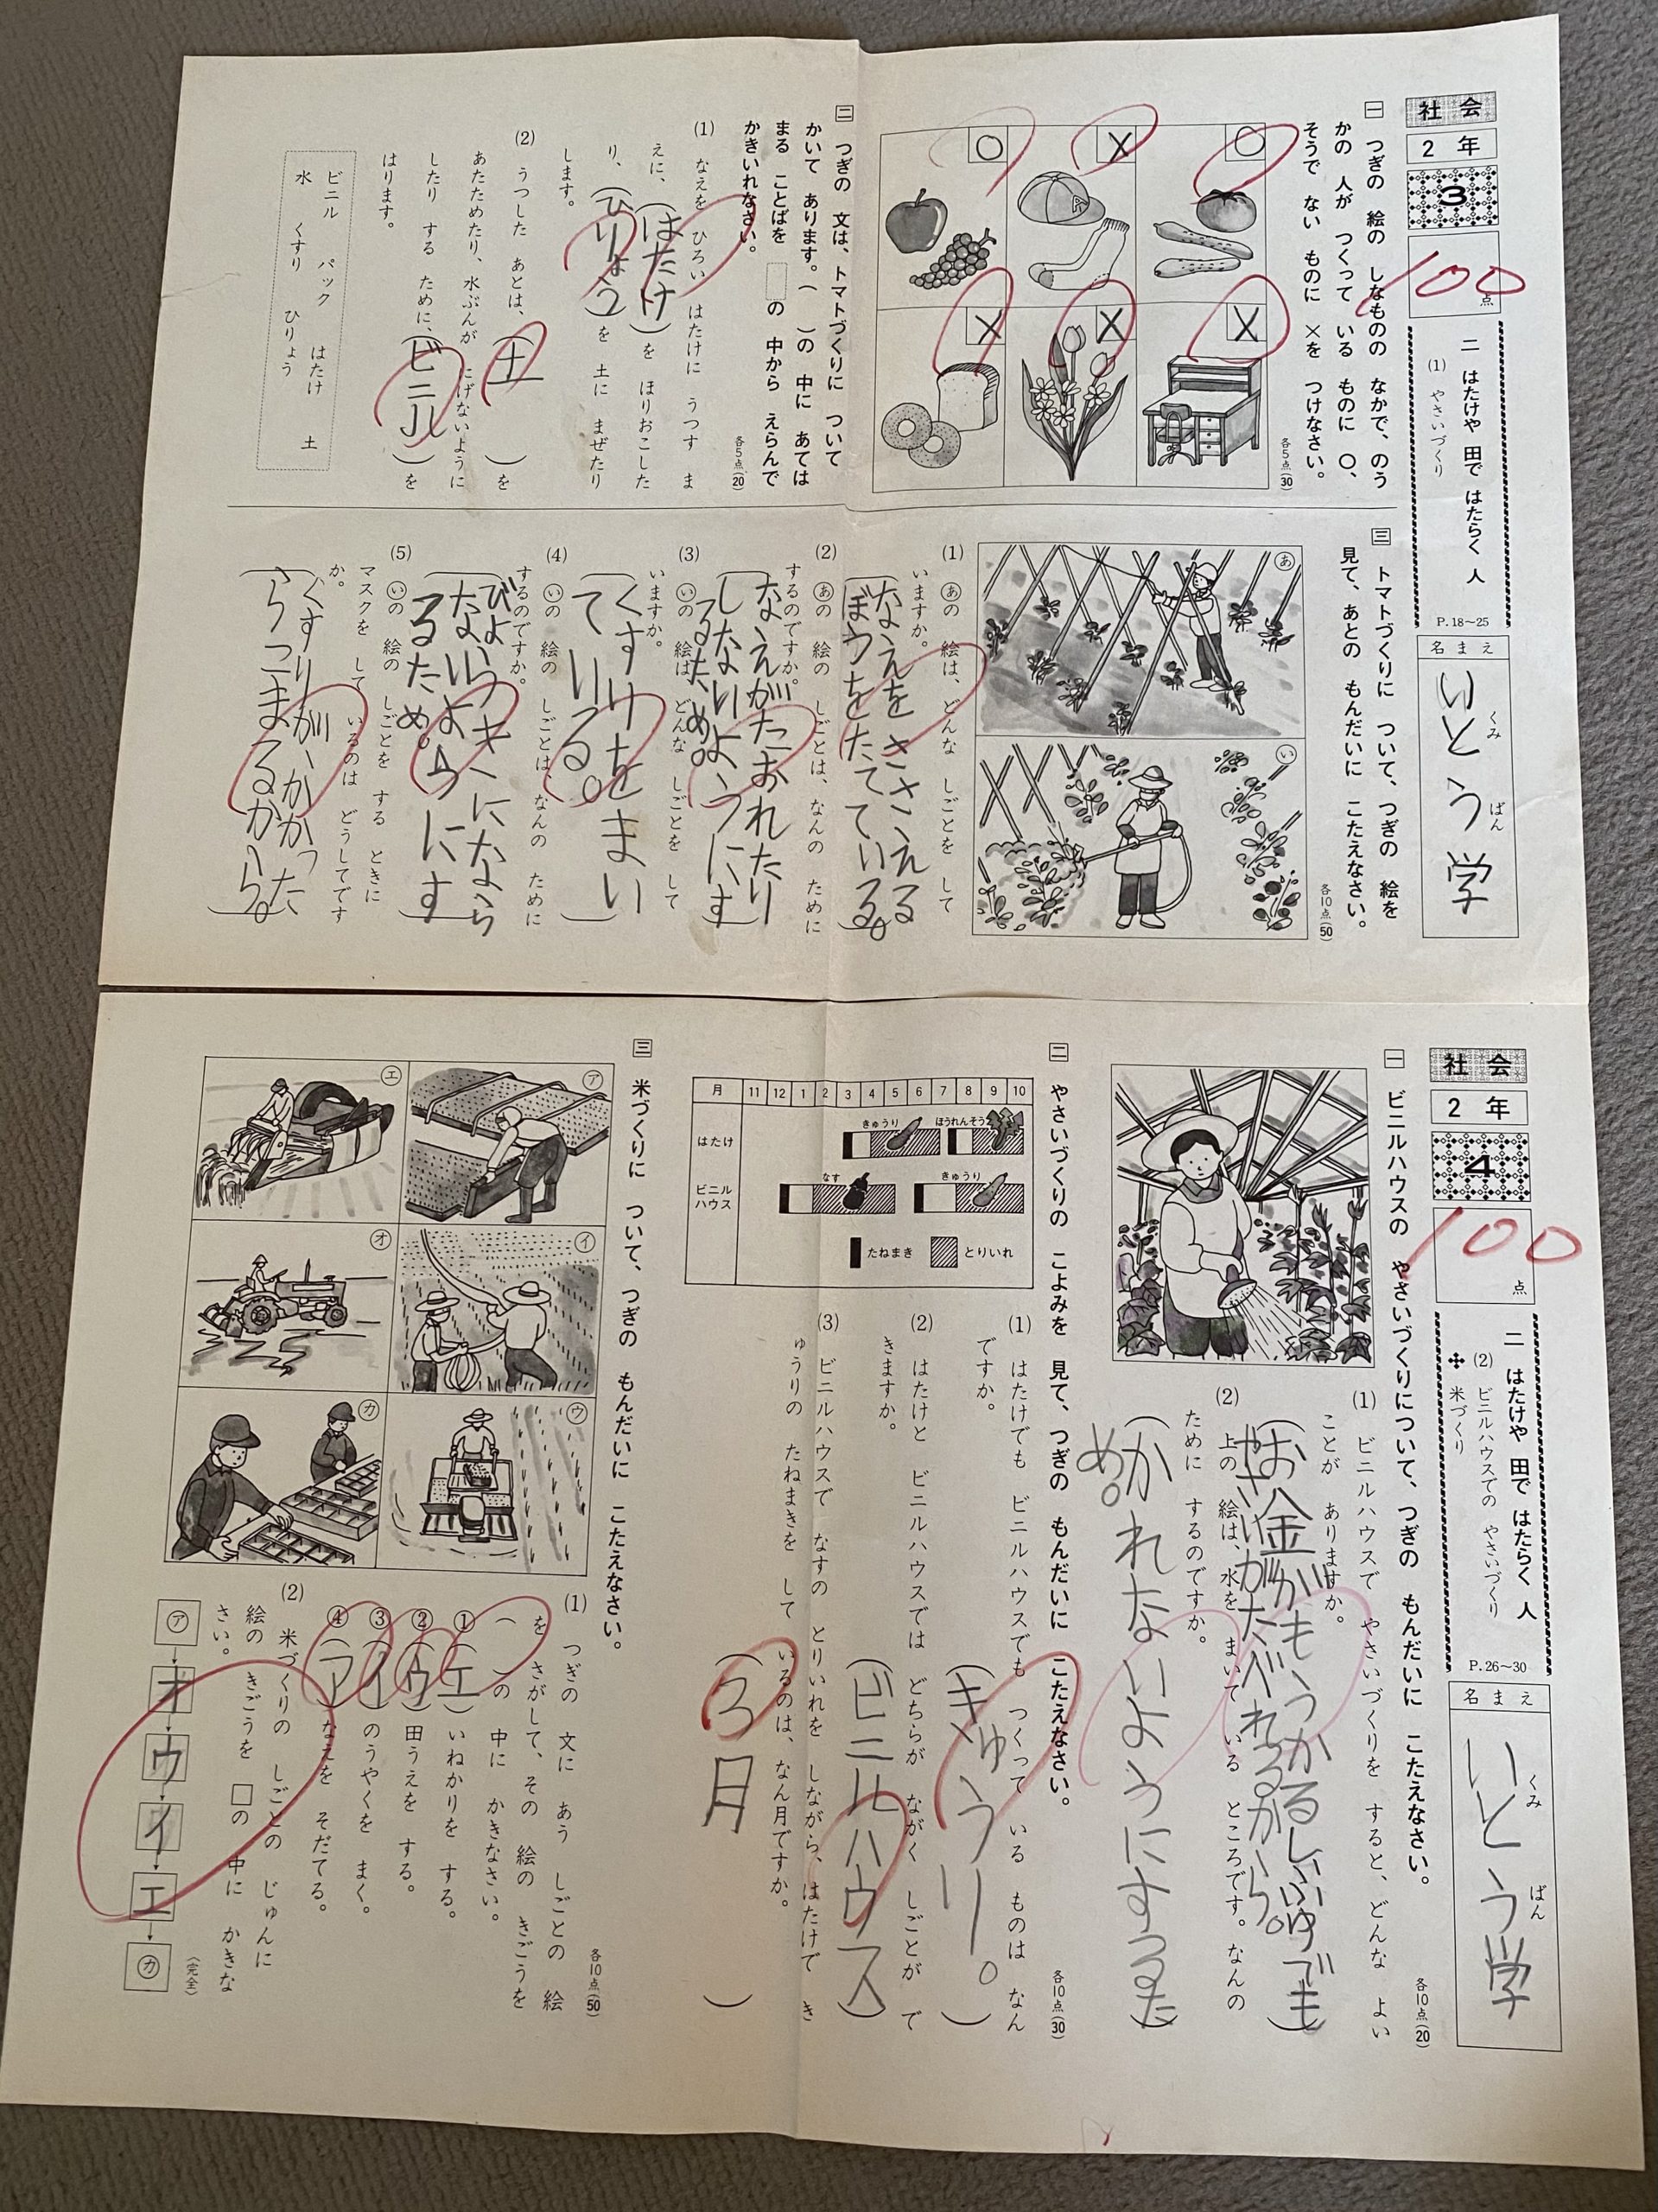 社会
2年
3
100点
二 はたけや 田で はたらく 人
(1) やさいづくり
P.18〜25
名まえ
くみ
ばん
いとう学
一 つぎの 絵の しなものの なかで、のう
かの 人が つくって いる ものに ○、
そうで ない ものに ×を つけなさい。
各5点(30)
○
×
○
×
×
×
二 つぎの 文は、トマトづくりに ついて
かいて あります。( )の 中に あては
まる ことばを の 中から えらんで
かきいれなさい。
各5点(20)
(1) なえを ひろい はたけに うつす ま
えに、(はたけ)を ほりおこした
り、(ひりょう)を 土に まぜたり
します。
(2) うつした あとは、(土)を
あたためたり、水ぶんが にげないように
したり する ために、(ビニル)を
はります。
ビニル パック はたけ 土
水 くすり ひりょう
三 トマトづくりに ついて、つぎの 絵を
見て、あとの もんだいに こたえなさい。
各10点(50)
あ
い
(1) あの 絵は、どんな しごとを して
いますか。
(なえを ささえる
ぼうをたてている。)
(2) あの 絵の しごとは、なんの ために
するのですか。
(なえがたおれたり
しないようにす
るため。)
(3) いの 絵は どんな しごとを して
いますか。
(くすりをまい
ている。)
(4) いの 絵の しごとは、なんの ために
するのですか。
(びょうきになら
ないようにす
るため。)
(5) いの 絵の しごとを する ときに
マスクを して いるのは どうしてです
か。
(くすりが、かかった
らこまるから。)
社会
2年
4
100点
二 はたけや 田で はたらく 人
(2) ビニルハウスでの やさいづくり
米づくり
P.26〜30
名まえ
くみ
ばん
いとう学
一 ビニルハウスの やさいづくりについて、つぎの もんだいに こたえなさい。
各10点(20)
(1) ビニルハウスで やさいづくりを すると、どんな よい
ことが ありますか。
(お金がもうかるしふゆでも
やさいがたべれるから。)
(2) 上の 絵は、水を まいて いる ところです。なんの
ために するのですか。
(かれないようにするた
め。)
二 やさいづくりの こよみを 見て、つぎの もんだいに こたえなさい。
各10点(30)
月 11 12 1 2 3 4 5 6 7 8 9 10
はたけ
きゅうり
ほうれんそう
ビニルハウス
なす
きゅうり
たねまき
とりいれ
(1) はたけでも ビニルハウスでも つくって いる ものは なん
ですか。
(きゅうり。)
(2) はたけと ビニルハウスでは どちらが ながく しごとが で
きますか。
(ビニルハウス)
(3) ビニルハウスで なすの とりいれを しながら、はたけで き
ゅうりの たねまきを して いるのは、なん月ですか。
(3月)
三 米づくりに ついて、つぎの もんだいに こたえなさい。
各10点(50)
ア
イ
ウ
エ
オ
カ
(1) つぎの 文に あう しごとの 絵
を さがして、その 絵の きごうを
( )の 中に かきなさい。
①(エ)いねかりを する。
②(ウ)田うえを する。
③(イ)のうやくを まく。
④(ア)なえを そだてる。
(2) 米づくりの しごとの じゅんに
絵の きごうを □の 中に かきな
さい。
(完全)
ア→オ→ウ→イ→エ→カ